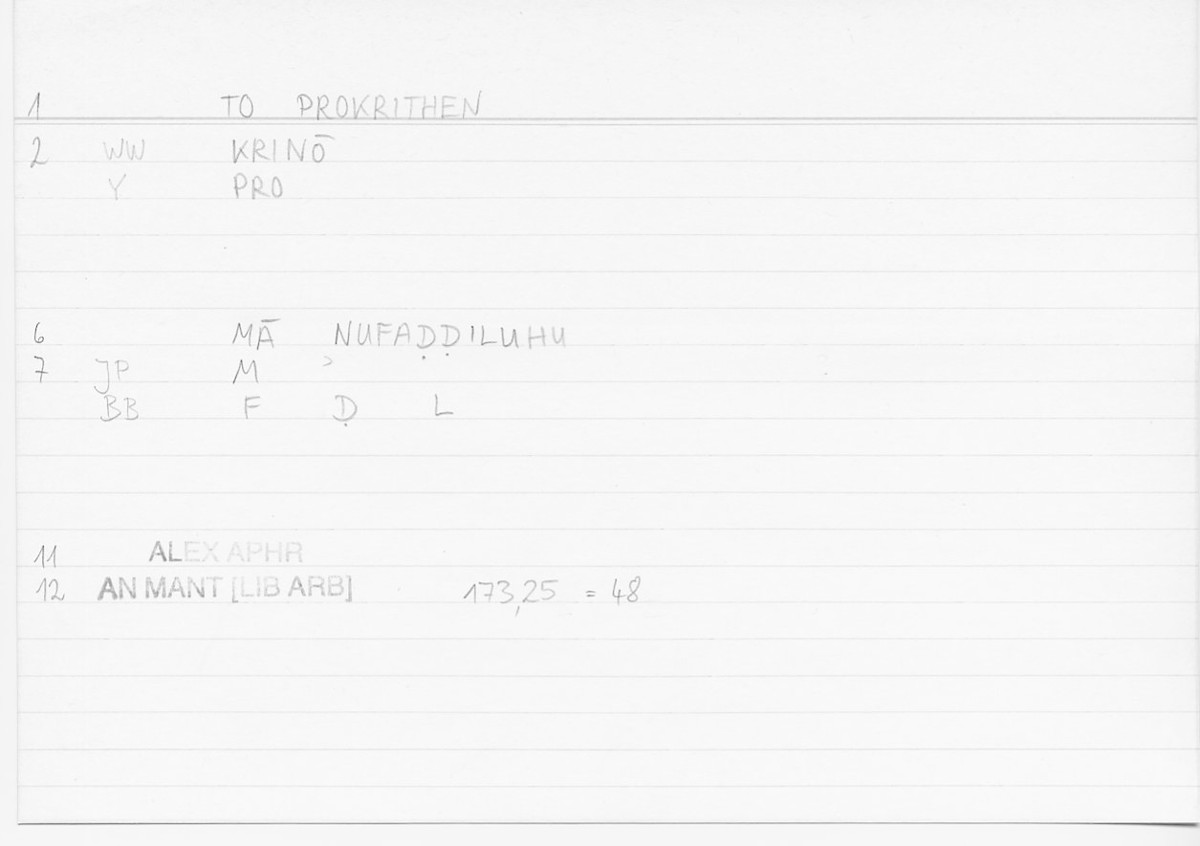 1 TO PROKRITHEN
2 WW KRINŌ
Y PRO
6 MĀ NUFAḌḌILUHU
7 JP M ʾ
BB F Ḍ L
11 ALEX APHR
12 AN MANT [LIB ARB] 173,25 = 48